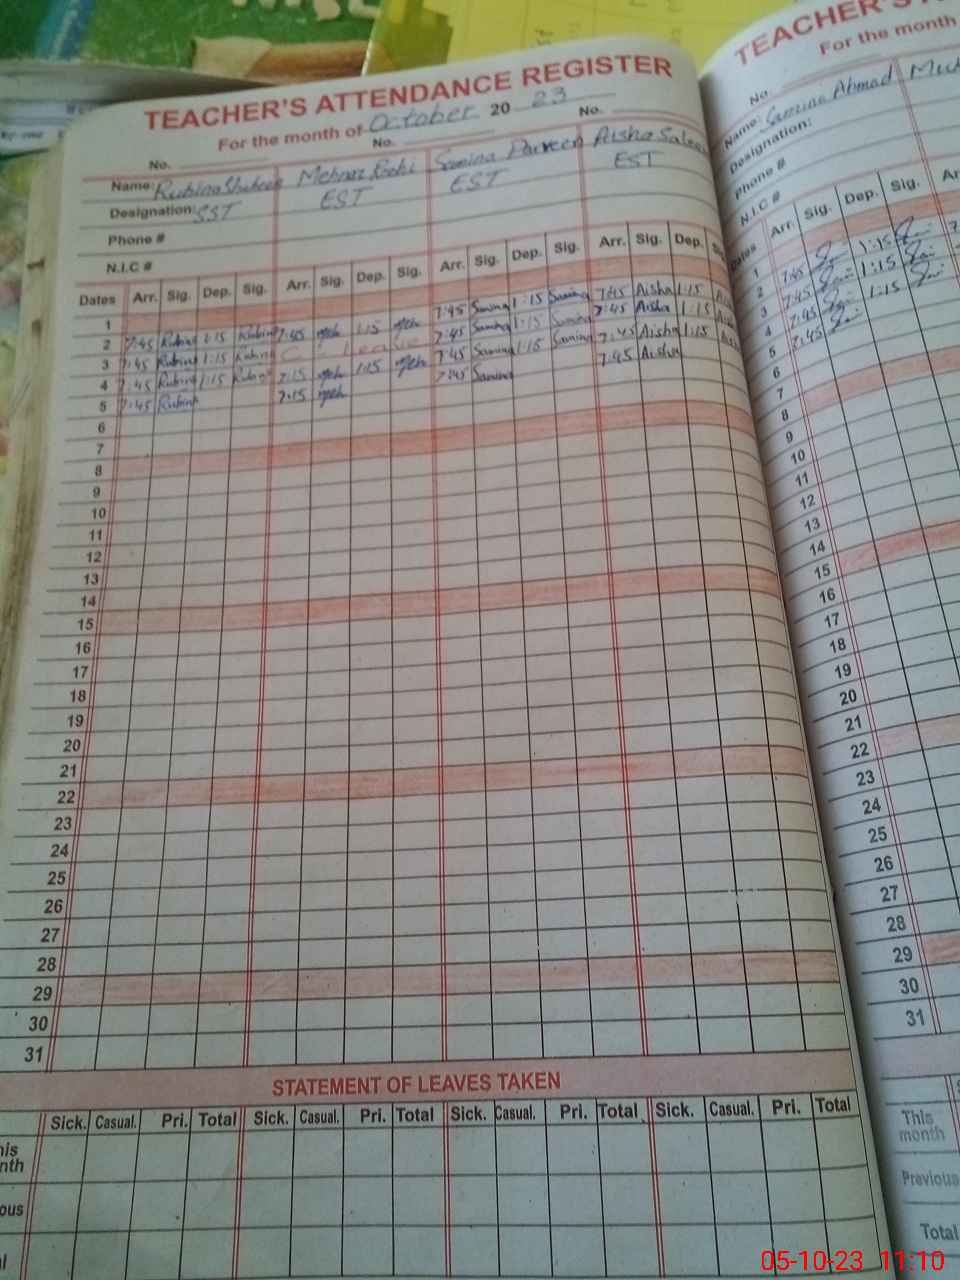 TEACHER'S ATTENDANCE REGISTER
For the month of October 2023
No. No. No.
Name: Rubina Shaheen Mehnaz Samina Parveen Aisha
Designation: SST EST EST EST
Phone #
N.I.C #
Dates Arr. Sig. Dep. Sig. Arr. Sig. Dep. Sig. Arr. Sig. Dep. Sig. Arr. Sig. Dep.
1
2 7:45 Rubina 1:15 Rubina 7:45 1:15 7:45 Samina 1:15 Samina 7:45 Aisha 1:15
3 7:45 Rubina 1:15 Rubina Leave 7:45 Samina 1:15 Samina 7:45 Aisha 1:15
4 7:45 Rubina 1:15 Rubina 7:15 1:15 7:45 Samina 1:15 Samina 7:45 Aisha 1:15
5 7:45 Rubina 7:15 7:45 Samina 7:45 Aisha
6
7
8
9
10
11
12
13
14
15
16
17
18
19
20
21
22
23
24
25
26
27
28
29
30
31
STATEMENT OF LEAVES TAKEN
Sick. Casual. Pri. Total Sick. Casual. Pri. Total Sick. Casual. Pri. Total Sick. Casual. Pri. Total
TEACHER'S
For the month
No.
Name: Samina Ahmad
Designation:
Phone #
N.I.C #
Dates Arr. Sig. Dep. Sig.
1
2 7:45 1:15
3 7:45 1:15
4 7:45 1:15
5 7:45
6
7
8
9
10
11
12
13
14
15
16
17
18
19
20
21
22
23
24
25
26
27
28
29
30
31
This
month
Previous
Total
05-10-23 11:10